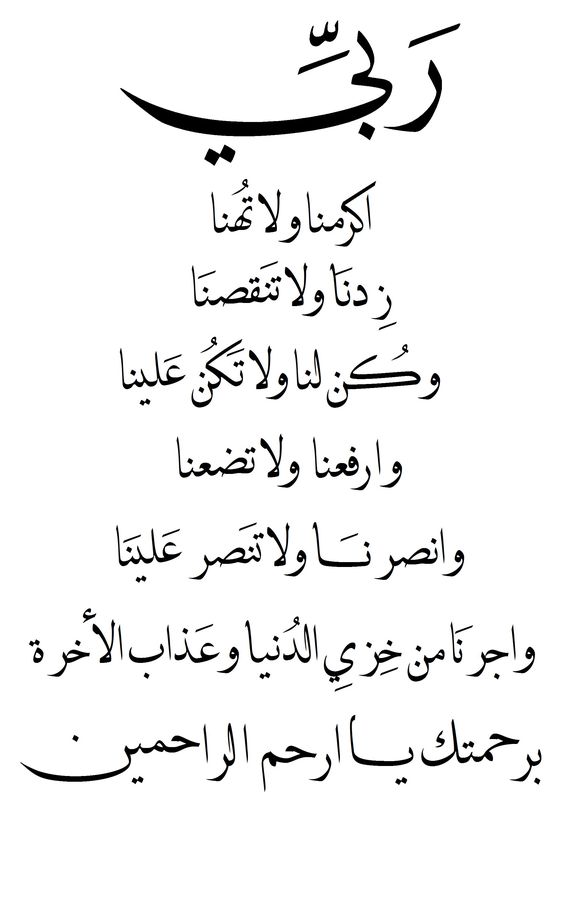 رَبِّي
اكرمنا ولا تهُنا
زِدنَا ولا تَنَقصنَا
وكُن لنا ولا تَكُن عَلينا
وارفعنا ولا تضعنا
وانصرنَا ولا تنَصر عَلينَا
واجرنَا من خِزيِ الدُنيا وعَذاب الأخرة
برحمتك يا ارحم الراحمين